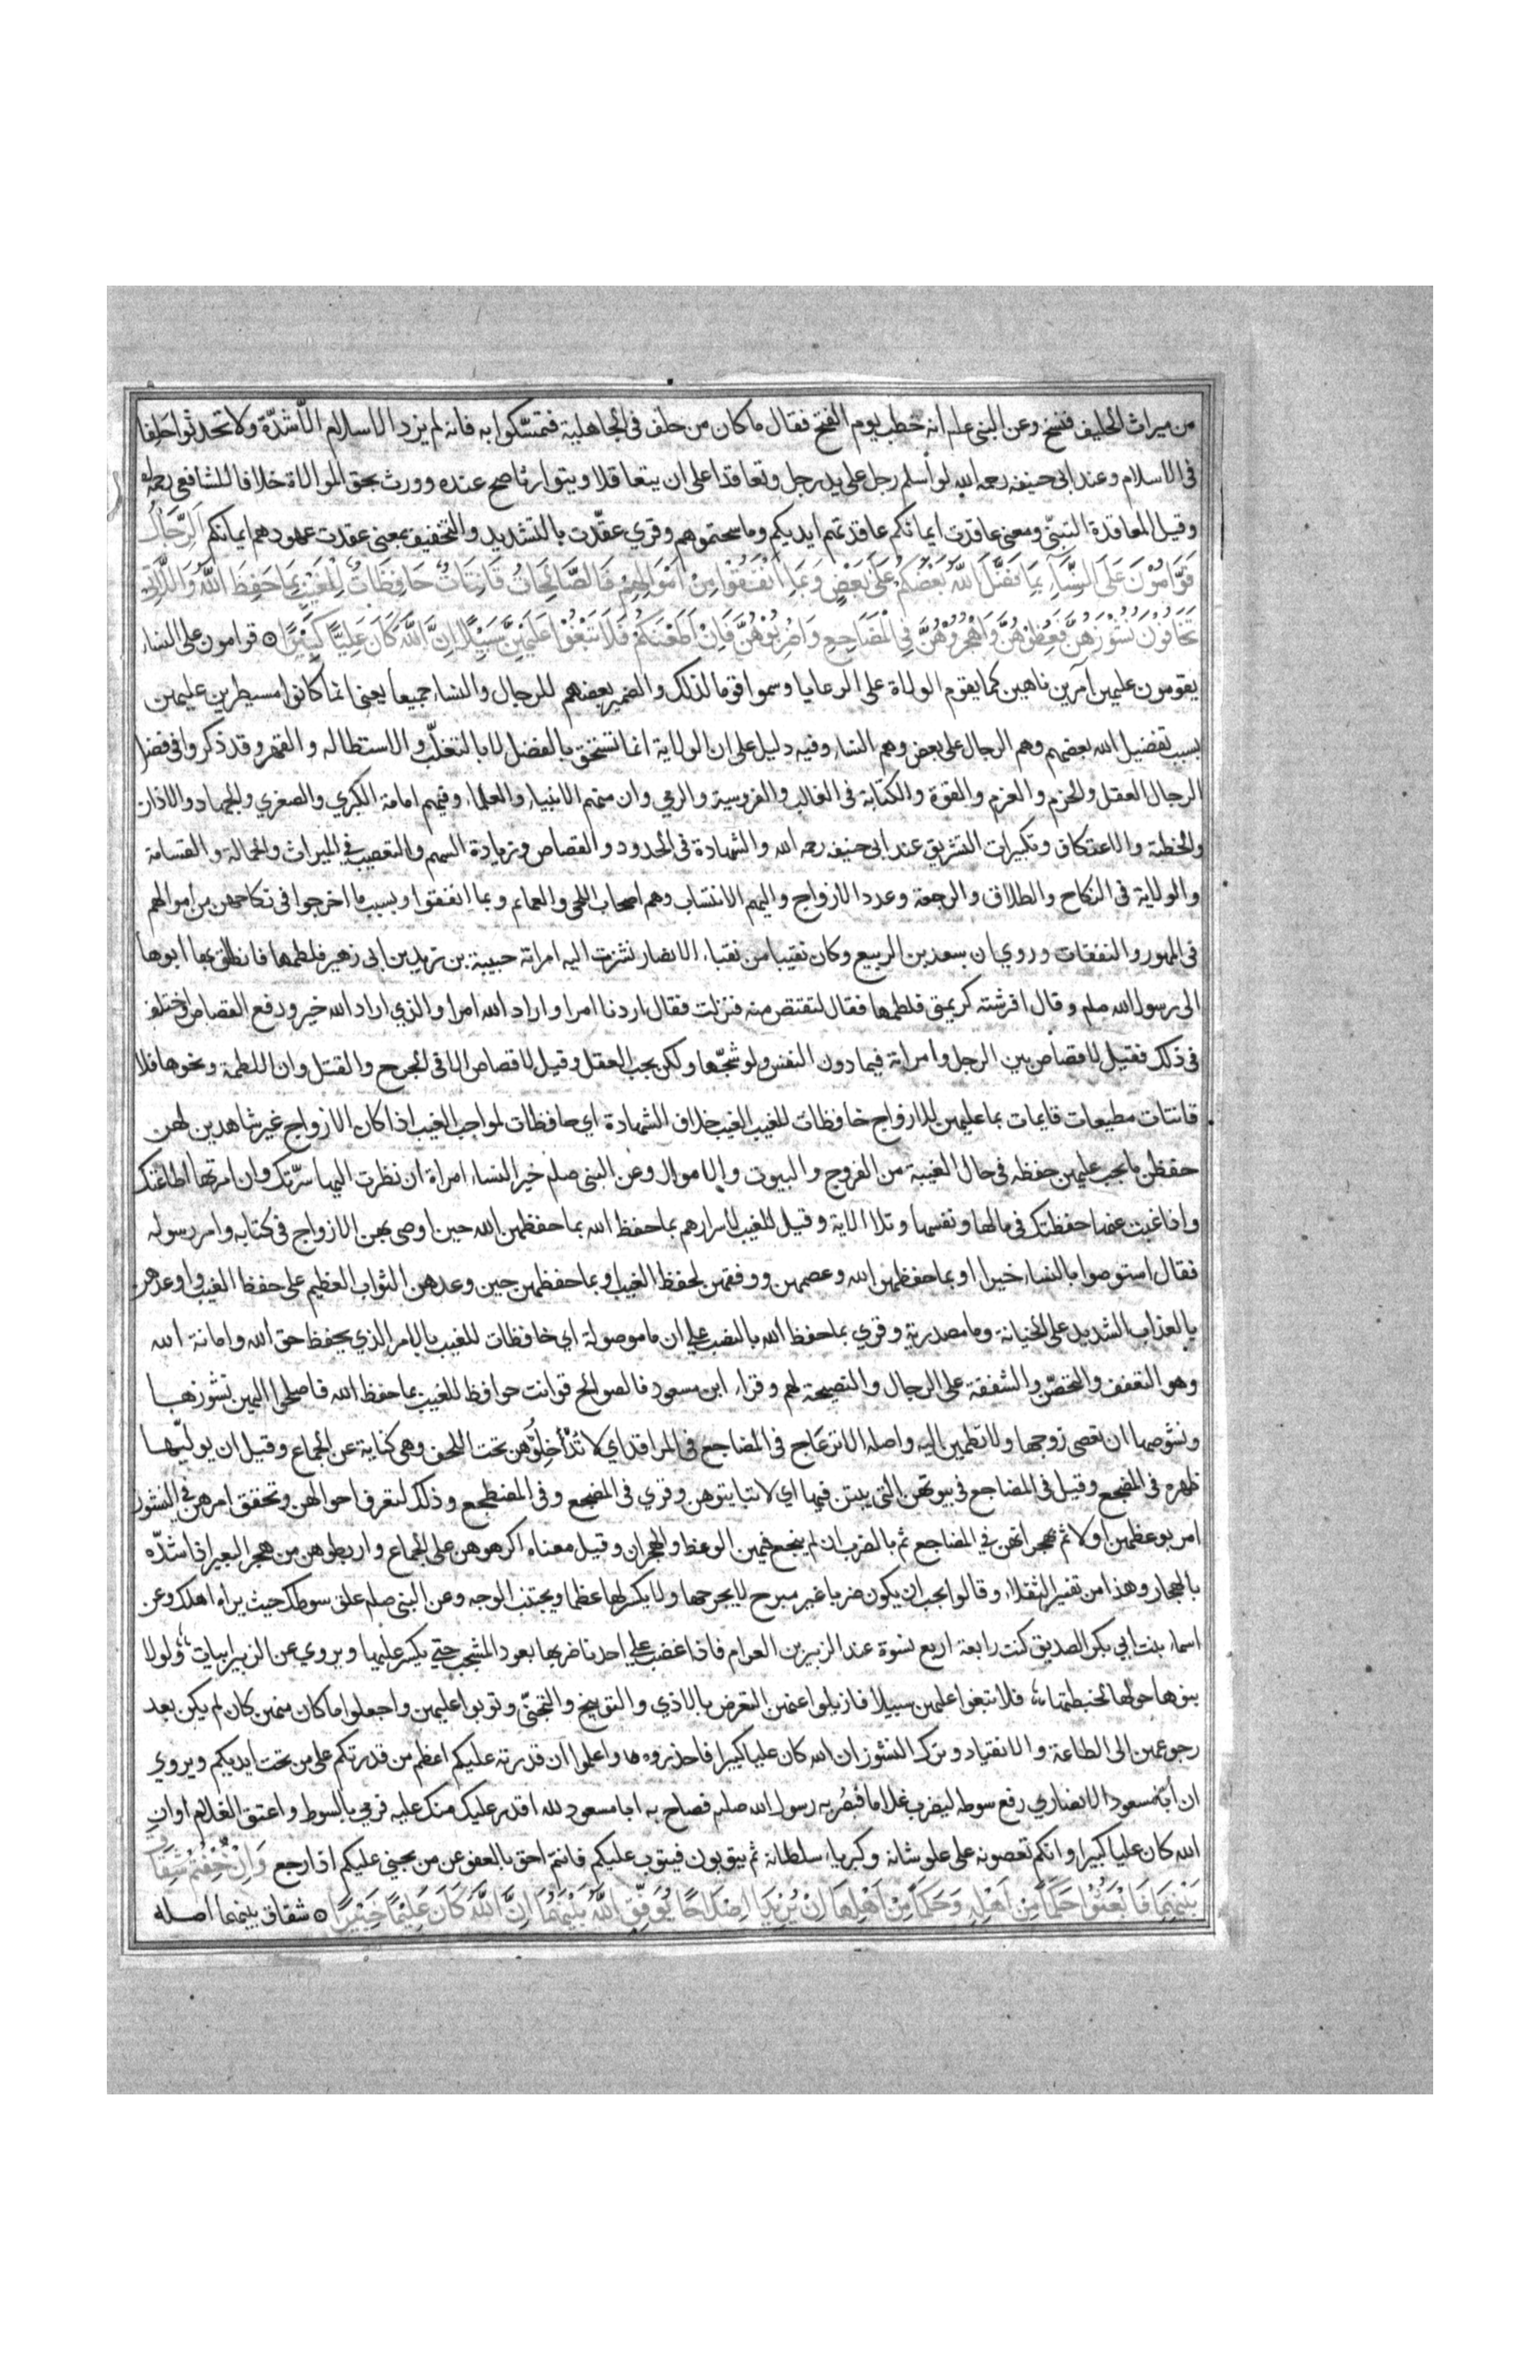 من ميراث الحليف فنسخ وعن النبي علم أنه خطب يوم الفتح فقال ما كان من حلف في الجاهلية فتمسّكوا به فانه لم يزد الاسلام الّا شدّة ولا تحدثوا حلفا
في الاسلام وعند ابي حنيفه رحمه الله لو أسلم رجل على يد رجل وتعاقدا على ان يتعاقلا ويتوارثا صح عنده وورث بحق الموالاة خلافا للشافعي رحمه الله
وقيل المعاقدة التبنّي ومعنى عاقدت ايمانكم عاقدتهم ايديكم وماسحتموهم وقري عقّدت بالتشديد والتخفيف بمعنى عقدت عهودهم ايمانكم الرِّجَالُ
قَوَّامُوْنَ عَلَى النِّسَآءِ بِمَا فَضَّلَ اللهُ بَعْضَكُمْ عَلَى بَعْضٍ وَبِمَا اَنْفَقُوْا مِنْ اَمْوَالِهِمْ فَالصَّالِحَاتُ قَانِتَاتٌ حَافِظَاتٌ لِلْغَيْبِ بِمَا حَفِظَ اللهُ وَاللَّاتِي
تَخَافُوْنَ نُشُوْزَهُنَّ فَعِظُوْهُنَّ وَاهْجُرُوْهُنَّ فِي الْمَضَاجِعِ وَاضْرِبُوْهُنَّ فَاِنْ اَطَعْنَكُمْ فَلَا تَبْغُوْا عَلَيْهِنَّ سَبِيْلًا اِنَّ اللهَ كَانَ عَلِيًّا كَبِيْرًا ⊙ قوامون على النساء
يقومون عليهن آمرين ناهين كما يقوم الولاة على الرعايا وسموا قوما لذلك والضمير بعضهم للرجال والنساء جميعا يعني انما كانوا مسيطرين عليهن
بسبب تفضيل الله بعضهم وهم الرجال على بعض وهم النساء وفيه دليل على ان الولاية انما تستحق بالفضل لا بالتغلّب والاستطاله والقهر وقد ذكروا في فضل
الرجال العقل والحزم والعزم والقوة والكتابة في الغالب والفروسية والرمي وان منهم الانبياء والعلماء وفيهم امامة الكبري والصغري والجهاد والاذان
والخطبة والاعتكاف وتكبيرات التشريق عند ابي حنيفه رحمه الله والشهادة في الحدود والقصاص وزيادة السهم والتعصيب في الميراث والحمالة والقسامة
والولاية في النكاح والطلاق والرجعة وعدد الازواج واليهم الانتساب وهم اصحاب اللحى والعمائم وبما انفقوا وبسبب ما اخرجوا في نكاحهن من أموالهم
في المهور والنفقات وروي ان سعد بن الربيع وكان نقيبا من نقباء الانصار نشزت اليه امراته حبيبة بن زيد بن ابي زهير فلطمها فانطلق بها ابوها
الى رسول الله صلم وقال افرشته كريمتي فلطمها فقال لتقتص منه فنزلت فقال اردنا امرا واراد الله امرا والذي اراد الله خير ورفع القصاص واختلف
في ذلك فقيل لا قصاص بين الرجل وامراته فيما دون النفس ولو شجّها ولكن يجب العقل وقيل لا قصاص الا في الجرح والقتل وان اللطمة ونحوها فلا
قانتات مطيعات قايمات بما عليهن للازواج حافظات للغيب الغيب خلاف الشهادة اي حافظات لمواجب الغيب اذا كان الازواج غير شاهدين لهن
حفظن ما يجب عليهن حفظه في حال الغيبة من الفروج والبيوت والاموال وعن النبي صلم خير النساء امراة ان نظرت اليها سرّتك وان امرتها اطاعتك
واذا غبت عنها حفظتك في مالها ونفسها وتلا الاية وقيل للغيب لاسرارهم بما حفظ الله بما حفظهن الله حين اوصى بهن الازواج في كتابه وامر رسوله
فقال استوصوا بالنساء خيرا او بما حفظهن الله وعصمهن ووفقهن لحفظ الغيب او بما حفظهن حين وعدهن الثواب العظيم على حفظ الغيب واوعدهن
بالعذاب الشديد على الخيانة وما مصدرية وقري بما حفظ الله بالنصب على ان ما موصولة اي حافظات للغيب بالامر الذي يحفظ حق الله وامانة الله
وهو التعفف والتحصّن والشفقة على الرجال والنصيحة لهم وقراء ابن مسعود فالصوالح قوانت حوافظ للغيب بما حفظ الله فاصلحوا اليهن نشوزها
ونشوصها ان تعصى زوجها ولا تطمئن اليه واصله الانزعاج في المضاجع في المراقد اي لا تُدْاخِلُوْهن تحت اللحف وهي كناية عن الجماع وقيل ان يوليّها
ظهره في المضجع وقيل في المضاجع في بيوتهن التي يبتن فيها اي لا تبايتوهن وقري في المضجع وفي المضطجع وذلك لتعرف احوالهن وتحقق امرهن في النشوز
امر بوعظهن اولا ثم هجرانهن في المضاجع ثم بالضرب ان لم ينجع فيهن الوعظ والهجران وقيل معناه اكرهوهن على الجماع واربطوهن من هجر البعير اذا شدّه
بالهجار وهذا من تفسير الثقلاء وقالوا يجب ان يكون ضربا غير مبرح لا يجرحها ولا يكسر لها عظما ويجتنب الوجه وعن النبي صلم علق سوطك حيث يراه اهلك وعن
اسماء بنت ابي بكر الصديق كنت رابعة اربع نسوة عند الزبير بن العوام فاذا غضب على احدنا ضربها بعود المشجب حتى يكسر عليها ويروي عن الزبير ابيات ؛ ولولا
بنوها حولها لخبطتها ؛ فلا تبغوا عليهن سبيلا فازيلوا عنهن التعرض بالاذي والتوبيخ والتجنّي وتوبوا عليهن واجعلوا ما كان منهن كان لم يكن بعد
رجوعهن الى الطاعة والانقياد وترك النشوز ان الله كان عليا كبيرا فاحذروه واعلموا ان قدرته عليكم اعظم من قدرتكم على من تحت ايديكم ويروي
ان أبا مسعود الانصاري رفع سوطه ليضرب غلاما فبصُر به رسول الله صلم فصاح به ابا مسعود لله اقدر عليك منك عليه فرمي بالسوط واعتق الغلام او ان
الله كان عليا كبيرا وانكم تعصونه على علو شانه وكبرياء سلطانه ثم يتوبون فيتوب عليكم فانتم احق بالعفو عن من يجني عليكم اذا رجع وَاِنْ خِفْتُمْ شِقَاقَ
بَيْنِهِمَا فَابْعَثُوْا حَكَمًا مِنْ اَهْلِهِ وَحَكَمًا مِنْ اَهْلِهَا اِنْ يُرِيْدَا اِصْلَاحًا يُوَفِّقِ اللهُ بَيْنَهُمَا اِنَّ اللهَ كَانَ عَلِيْمًا خَبِيْرًا ⊙ شقاق بينهما اصله